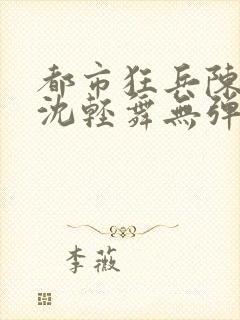 都市狂兵陳
沈輕舞無彈
李薇